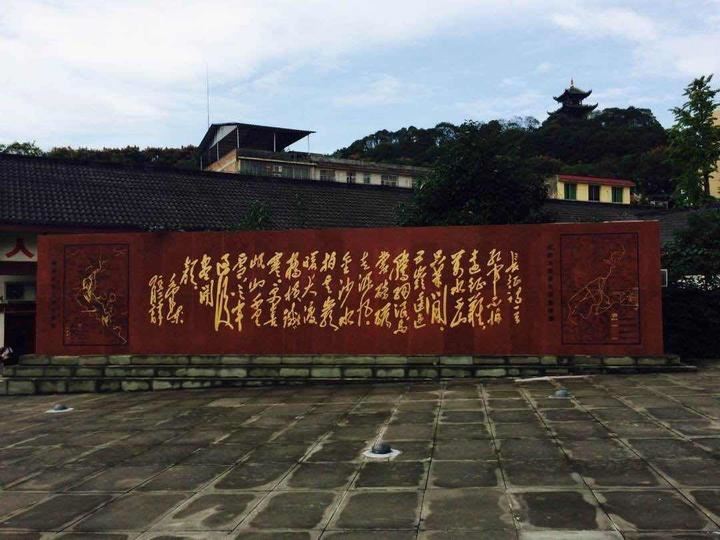 人
长征诗一首
红军不怕
远征难
万水千山
只等闲
五岭逶迤
腾细浪乌
蒙磅礴
走泥丸
金沙水
拍云崖
暖大渡
桥横铁索
寒更喜
岷山千里
雪三军
过后
尽开
颜
毛泽东